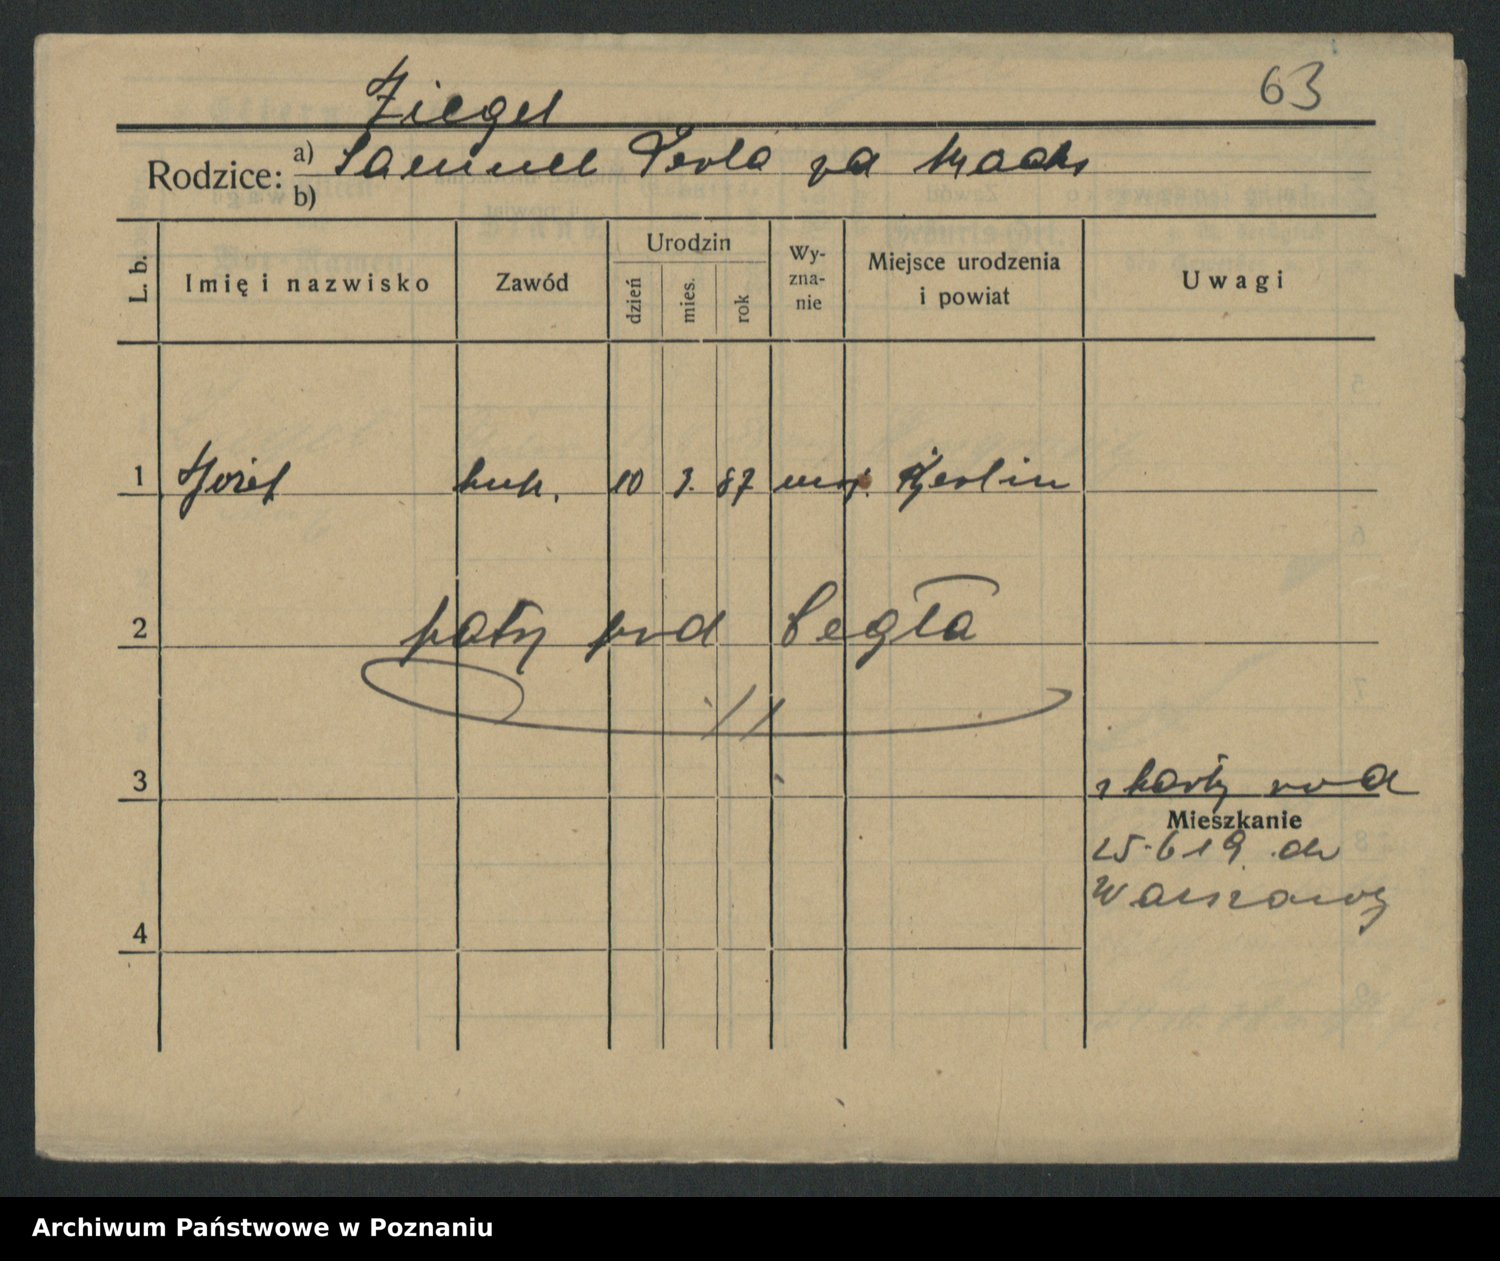 Ziegel
63
Rodzice: a) Samuel Perla za
b)
L. b. Imię i nazwisko Zawód Urodzin dzień mies. rok Wy-zna-nie Miejsce urodzenia i powiat Uwagi
1 Józef kup. 10 3. 87 moj. Berlin
2 patrz pod Cegła
3
z karty rod
Mieszkanie
25.6 19. do
Warszawy
4
Archiwum Państwowe w Poznaniu